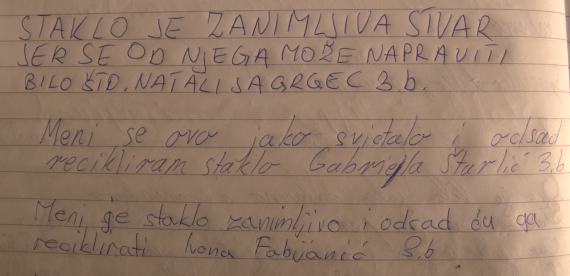 STAKLO JE ZANIMLJIVA STVAR
JER SE OD NJEGA MOŽE NAPRAVITI
BILO ŠTO. NATALI SAGRGEC 3.b.
Meni se ovo jako svidalo i odsad
recikliram staklo Gabriela Šturlić 3.b
Meni je staklo zanimljivo i odsad ću ga
reciklirati Ivona Fabijanić 3.b